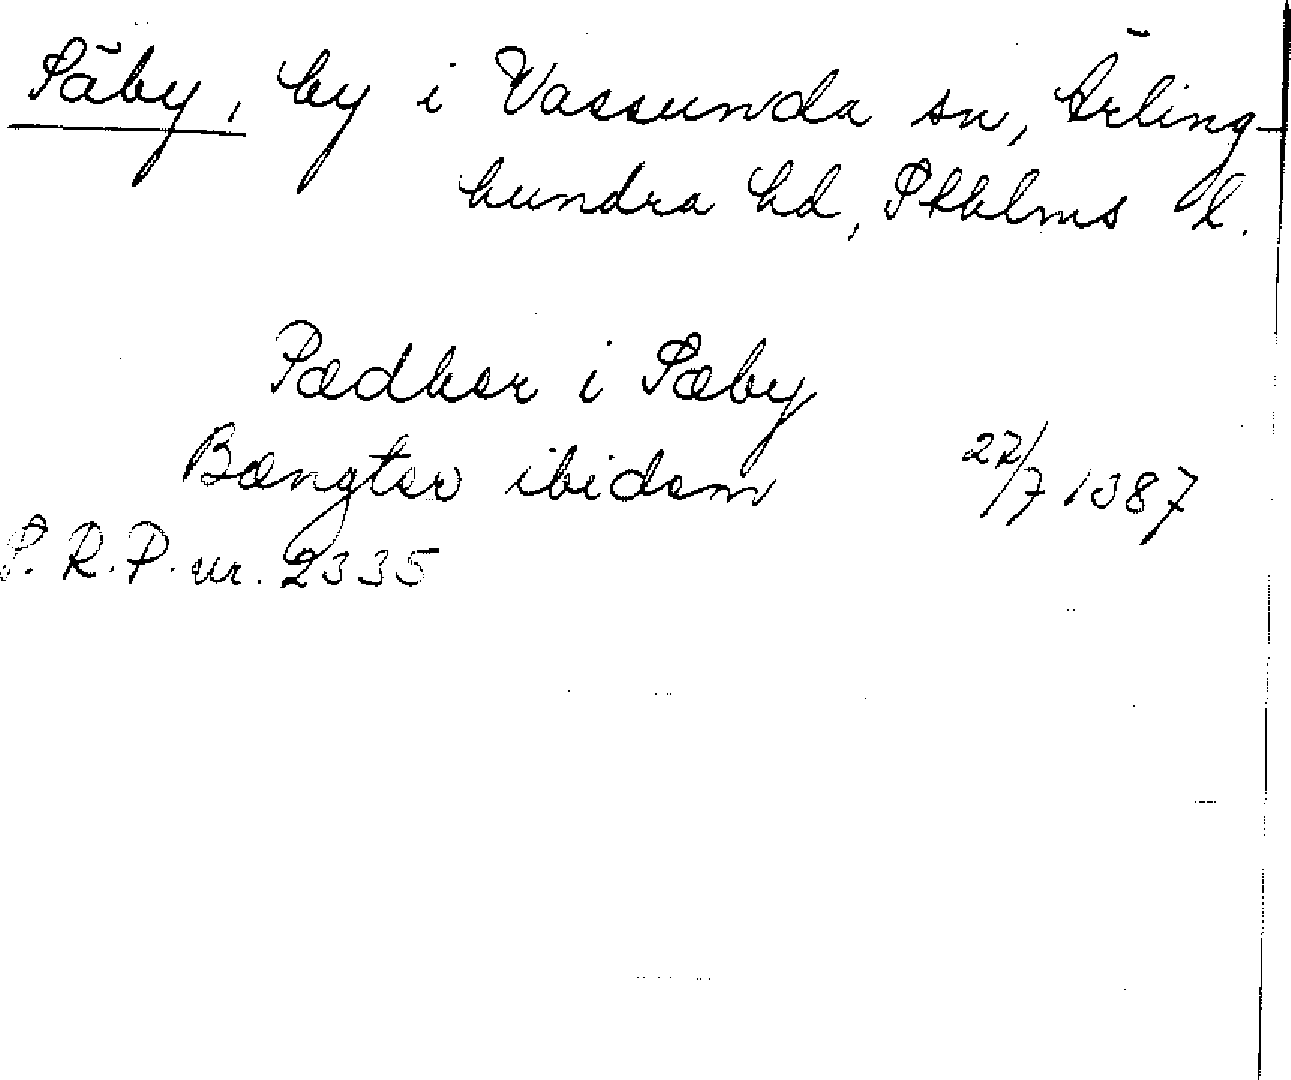 Säby, by i Vassunda sn, Ärling-
hundra hd, Sthlms l.
Pædher i Sæby
Bængter ibidem 22/7 1387
S. R. P. nr. 2335